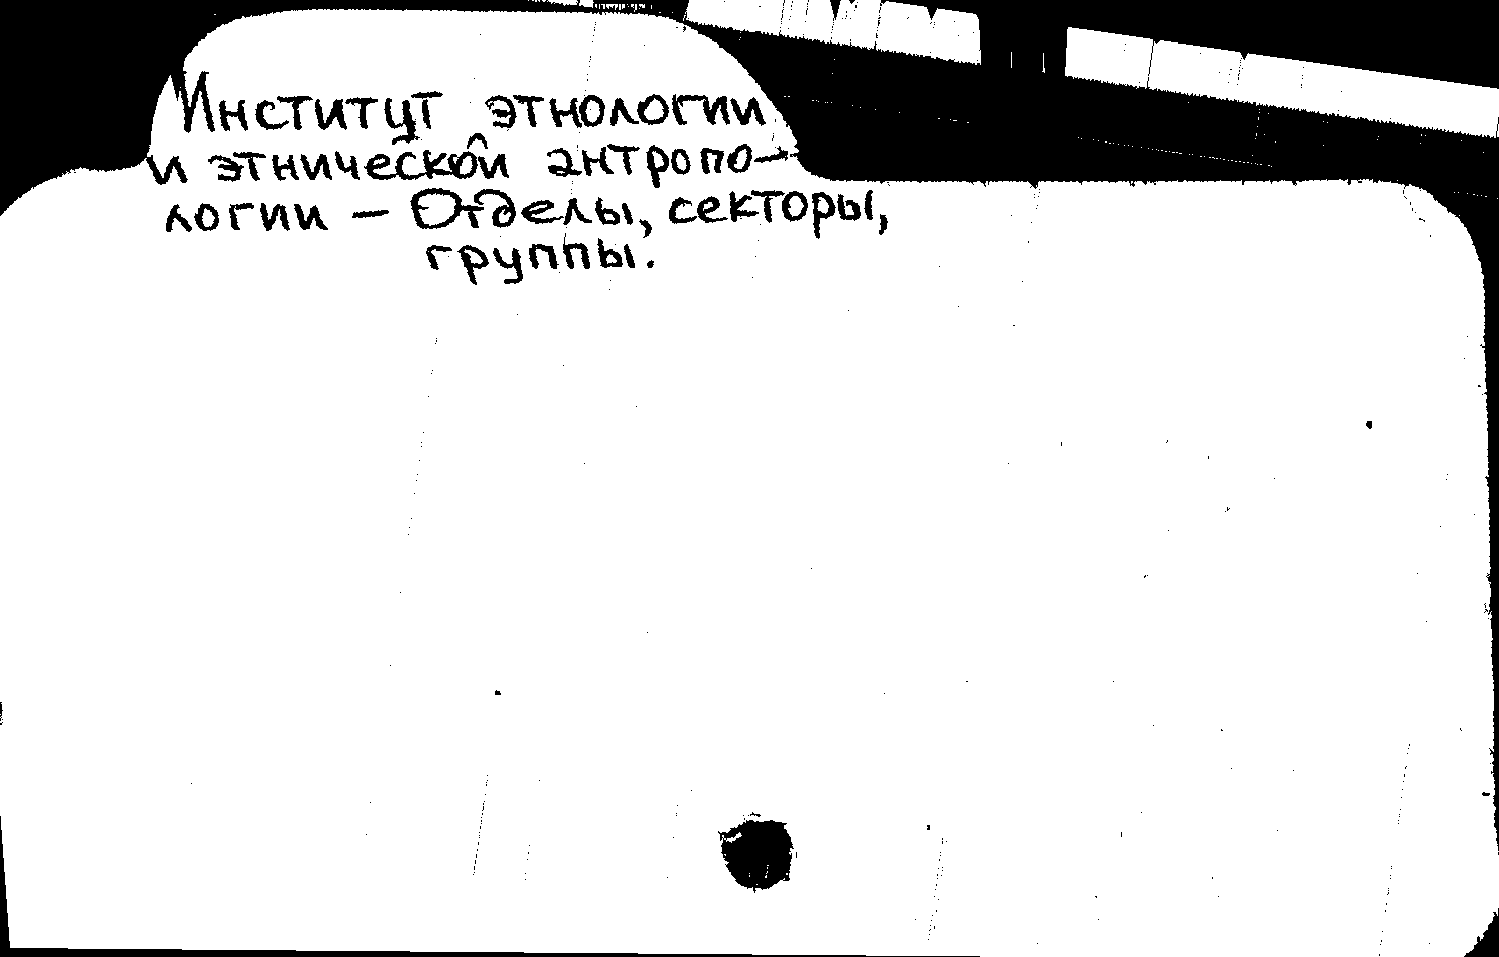 Институт этнологии
и этнической антропо-
логии – Отделы, секторы,
группы.